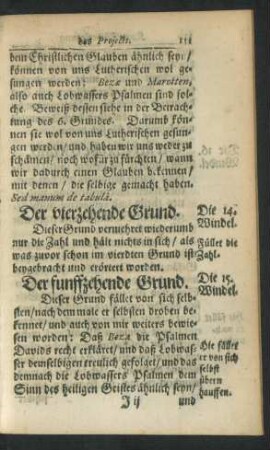 des Projects. 131
dem Christlichen Glauben ähnlich sey:/
können von uns Lutherischen wol ge-
sungen werden: Bezæ und Marotten,
also auch Lobwassers Psalmen sind sol-
che. Beweiß dessen siehe in der Betrach-
tung des 6. Grundes. Darumb kön-
nen sie wol von uns Lutherischen gesun-
gen werden/ und haben wir uns weder zu
schämen/ noch vorfür zu fürchten/ wann
wir dadurch einen Glauben bekennen/
mit denen/ die selbige gemacht haben.
Sed manum de tabulâ.
Der vierzehende Grund.
Die 14.
Windel.
Dieser Grund vermehret wiederumb
nur die Zahl und hält nichts in sich/ als
Füllet die
was zuvor schon im vierdten Grund ist
Zahl.
beygebracht und erörtert worden.
Der funffzehende Grund.
Die 15.
Windel.
Dieser Grund fället von sich selb-
sten/ nach dem male er selbsten droben be-
kennet/ und auch von mir weiters bewie-
sen worden: Daß Beza die Psalmen
Davids recht erkläret/ und daß Lobwas-
ser demselbigen treulich gefolget/ und das
demnach die Lobwassers Psalmen dem
Sinn des heiligen Geistes ähnlich seyn/
Hie fället
er von sich
selbst
übern
hauffen.
J ij und